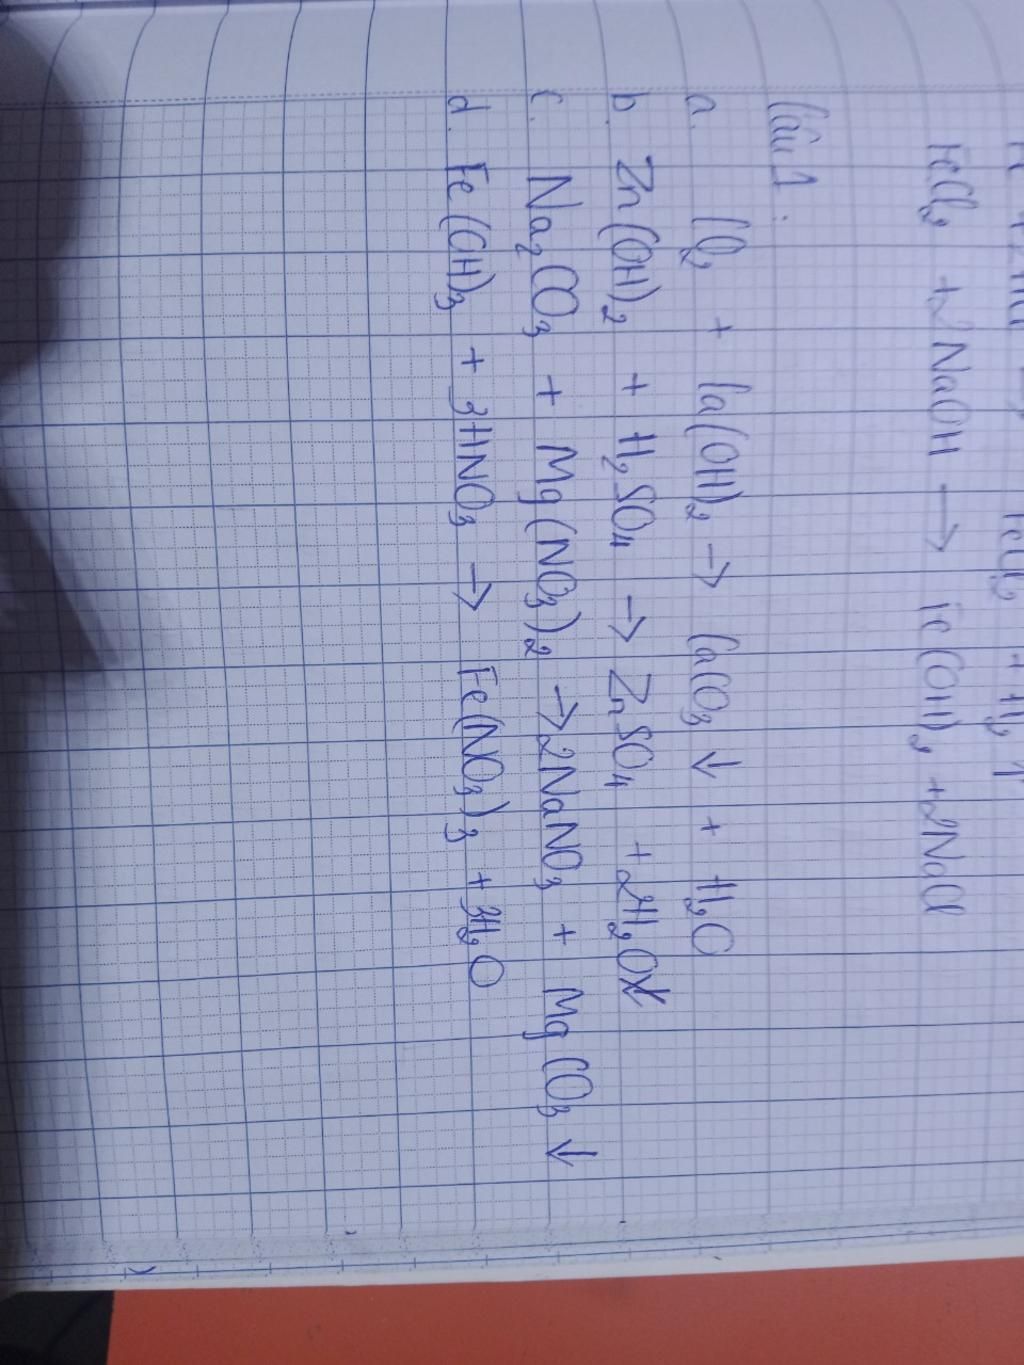 FeCl₂ + 2NaOH → Fe(OH)₂ + 2NaCl
Câu 1:
a. CO₂ + Ca(OH)₂ → CaCO₃ ↓ + H₂O
b. Zn(OH)₂ + H₂SO₄ → ZnSO₄ + 2H₂O
c. Na₂CO₃ + Mg(NO₃)₂ → 2NaNO₃ + MgCO₃ ↓
d. Fe(OH)₃ + 3HNO₃ → Fe(NO₃)₃ + 3H₂O